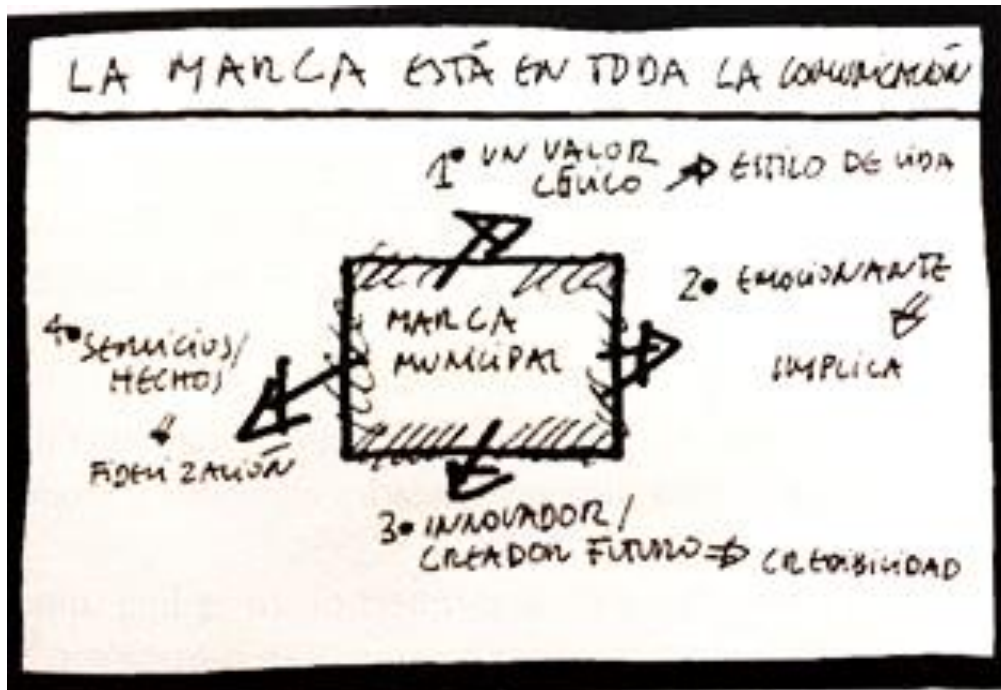 LA MARCA ESTÁ EN TODA LA COMUNICACIÓN
1• UN VALOR
CÍVICO → ESTILO DE VIDA
MARCA
MUNICIPAL
2• EMOCIONANTE
IMPLICA
3• INNOVADOR/
CREADOR FUTURO ⇒ CREDIBILIDAD
4• SERVICIOS/
HECHOS
FIDELIZACIÓN